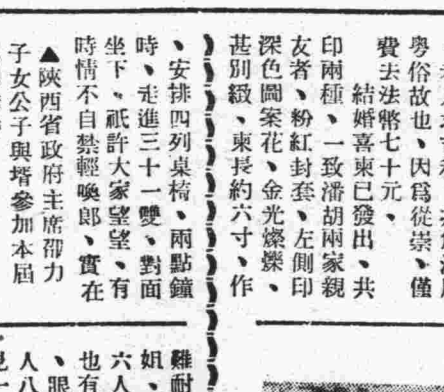 粵俗故也、因爲從崇、僅
費去法幣七十元、
結婚喜柬已發出、共
印兩種、一致潘胡兩家親
友者、粉紅封套、左側印
深色圖案花、金光燦爍、
甚別緻、柬長約六寸、作
、安排四列桌椅、兩點鐘
時、走進三十一雙、對面
坐下、祇許大家望望、有
時情不自禁輕喚郎、實在
▲陝西省政府主席邵力
子女公子與壻參加本屆
難耐
姐、
六人
也有
、眼
人八